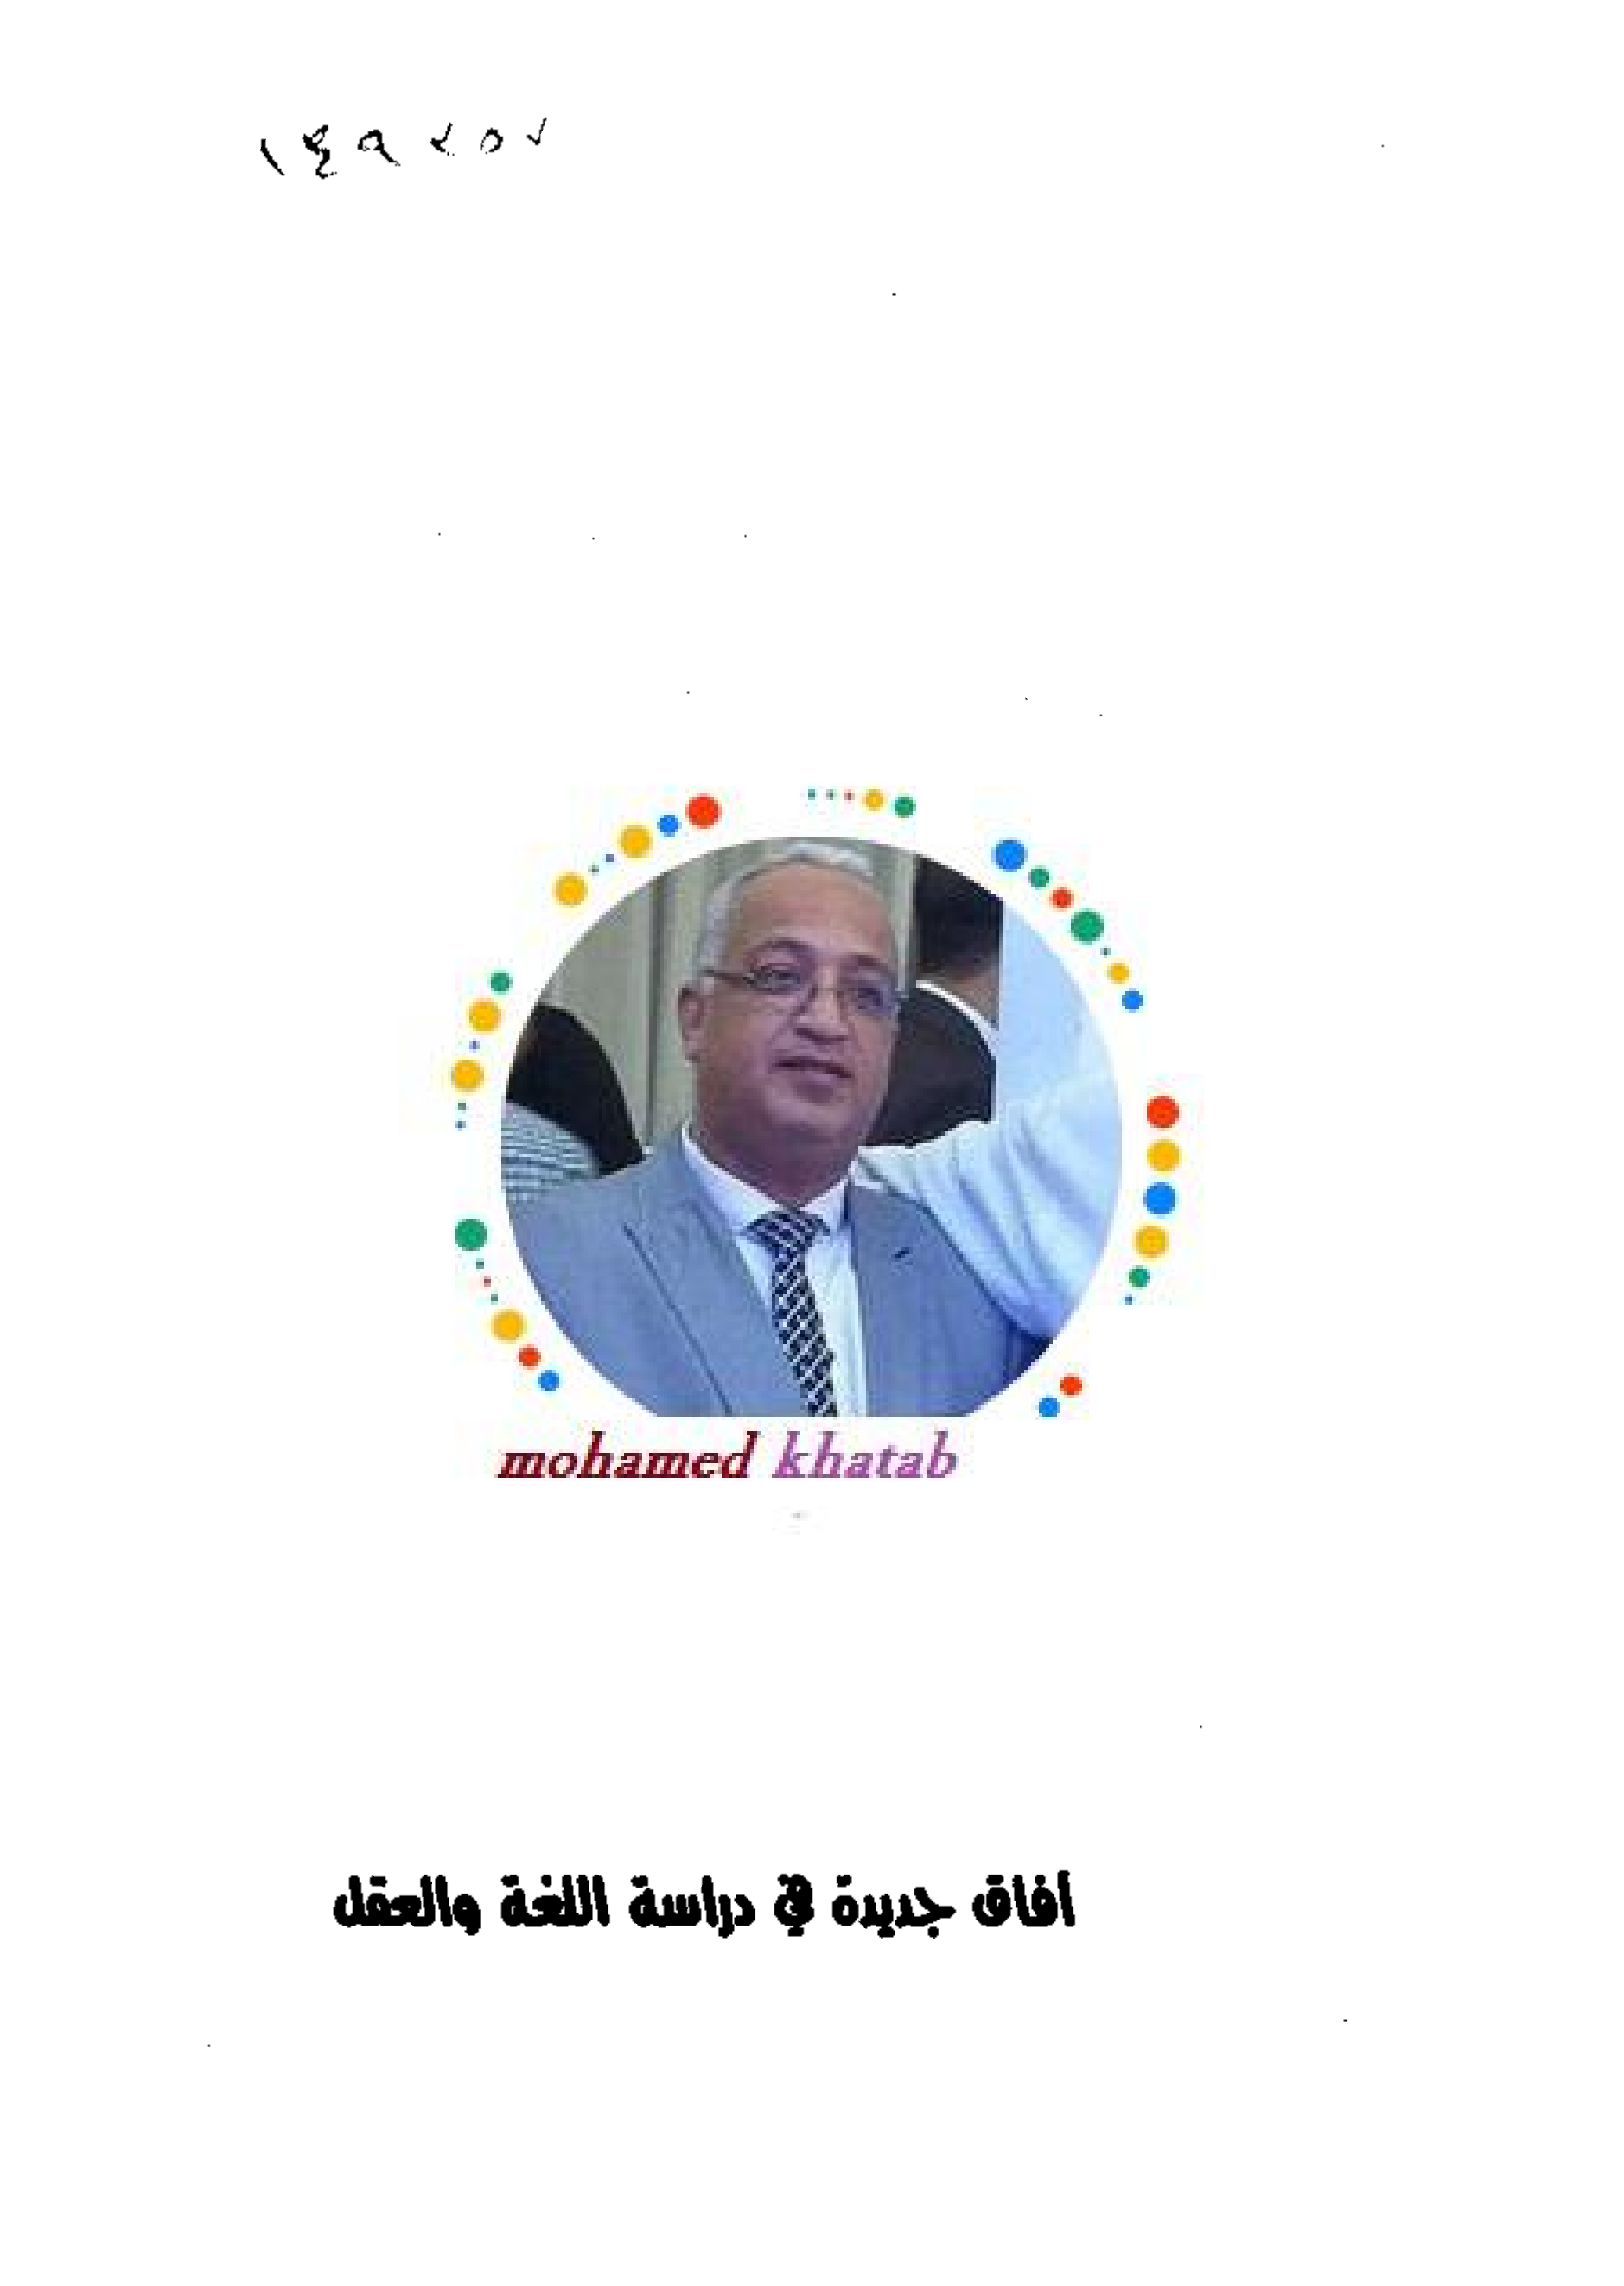 mohamed khatab
آفاق جديدة في دراسة اللغة والعقل